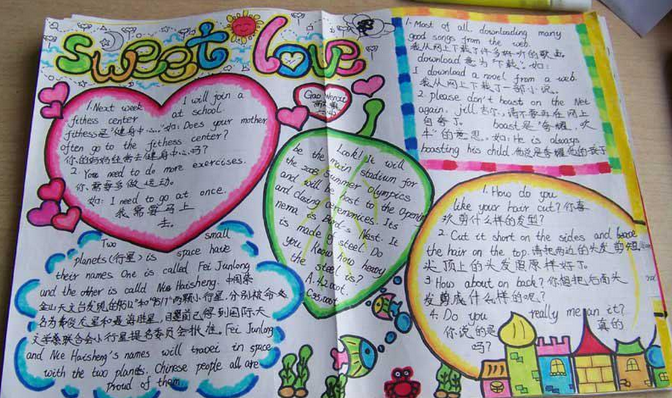 sweet love
1. Next week I will join a
fitness center at school.
fitness是"健身中心". 如: Does your mother
often go to the fitness center?
你的妈妈经常去健身中心吗?
2. You need to do more exercises.
你需要多做运动。
如: I need to go at once.
我需要马上
去。
Two small
planets (行星) in space have
their names. One is called Fei Junlong
and the other is called Nie Haisheng.
文学家联合会小行星提名委员会批准。Fei Junlong
and Nie Haisheng's names will travel in space
with the two planets. Chinese people all are
proud of them.
Look! It will
be the main stadium for
the 2008 summer olympics
and will be host to the opening
and closing ceremonies. Its
nema is Bird-s Nest. It
is made of steel. Do
you know how heavy
the steel is?
A. 42,000t.
1. Most of all downloading many
good songs from the web.
我从网上下载了许多好听的歌曲
download 意为"下载". 如:
I download a novel from a web.
我从网上下载了一部小说。
2. please don't boast on the Net
again, jill
boast是"夸耀, 吹
牛"的意思. 如: He is always
boasting his child.
1. How do you
like your hair cut? 你喜
欢剪什么样的发型?
2. Cut it short on the sides and leave
the hair on the top. 请把两边的头发剪短,
头顶上的头发照原样好了。
3 How about on back? 你想把后面头
发剪成什么样的呢?
4. Do you really mean it?
你说的是 真的
吗?